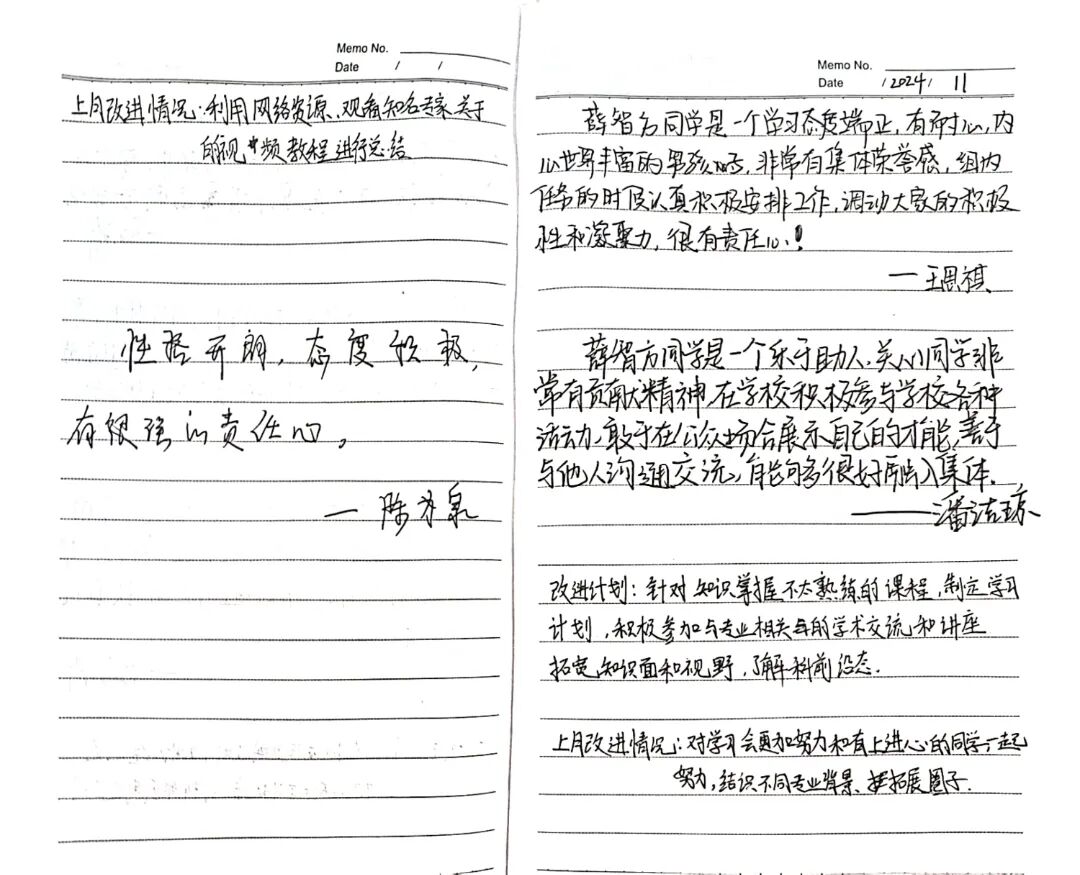 Memo No.
Date / /
上月改进情况:利用网络资源、观看知名专家关于
的视频教程进行总结
性格开朗,态度积极,
有很强的责任心。
Memo No.
Date / 2024 / 11
薛智方同学是一个学习态度端正,有耐心,内
心世界丰富的男孩,非常有集体荣誉感,组内
任务的时候认真积极安排工作,调动大家的积极
性和凝聚力,很有责任心!
—王思祺
薛智方同学是一个乐于助人、关心同学非
常有贡献精神,在学校积极参与学校各种
活动,敢于在公众场合展示自己的才能,善于
与他人沟通交流,能够多很好融入集体.
——潘洁琼
改进计划:针对知识掌握不太熟练的课程,制定学习
计划,积极参加与专业相关的学术交流和讲座
拓宽知识面和视野,了解科前沿态.
上月改进情况:对学习会更加努力和有上进心的同学一起
努力,结识不同专业背景、拓展圈子.